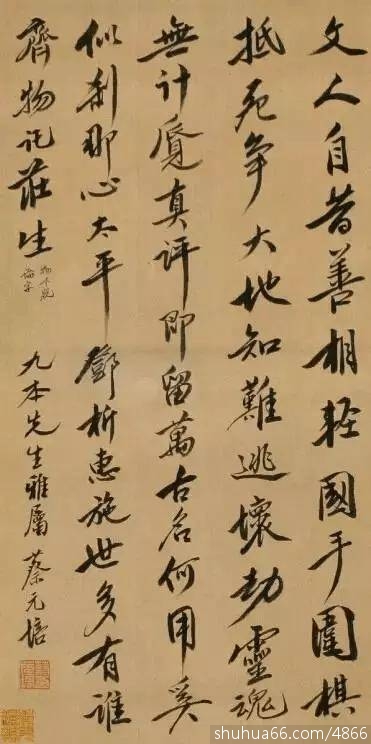 文人自昔善相輕國手圍棋
抵死爭大地知難逃壞劫靈魂
無計覔真評即留萬古名何用奚
似刹那心太平鄧析惠施世多有誰
齊物託莊生
物下脫
論字
九本先生雅屬 蔡元培
shuhua66.com/4866